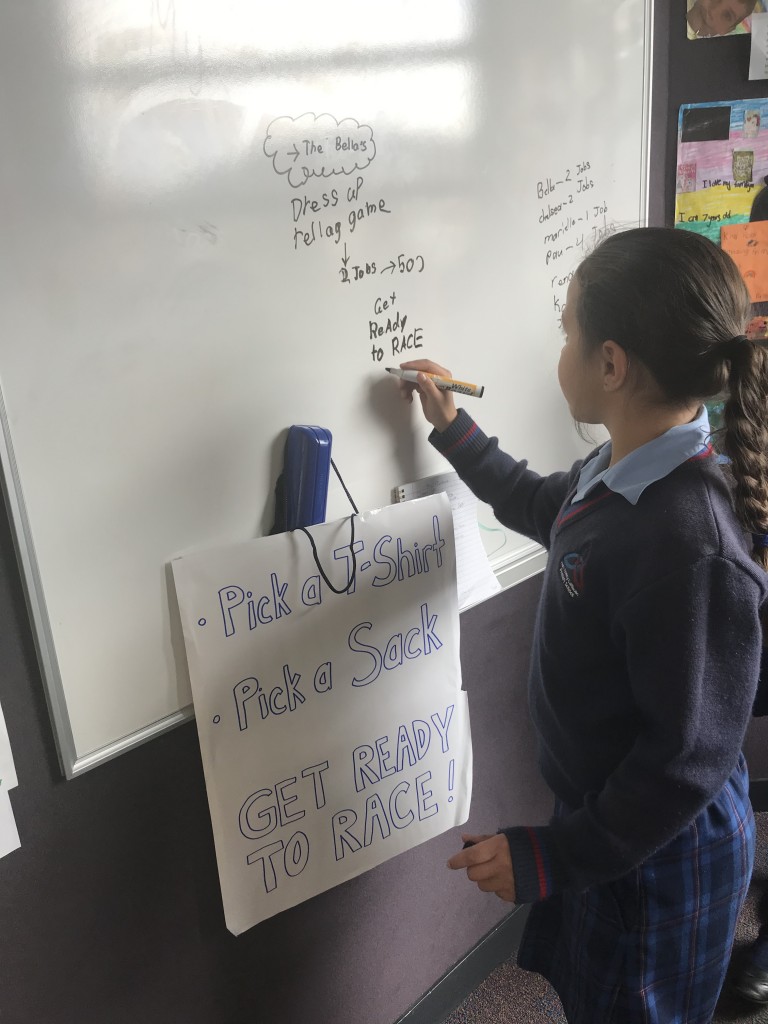 My
→ The Bella's
Dress up
rellag game
↓
2 Jobs → 500
Get
ReAdy
to RACE
Bella - 2 Jobs
chelsea - 2 Jobs
mariella - 1 Job
Pau - 4 Jobs
• Pick a T-Shirt
• Pick a Sack
GET READY
TO RACE!
I love my family
I am 7 years old